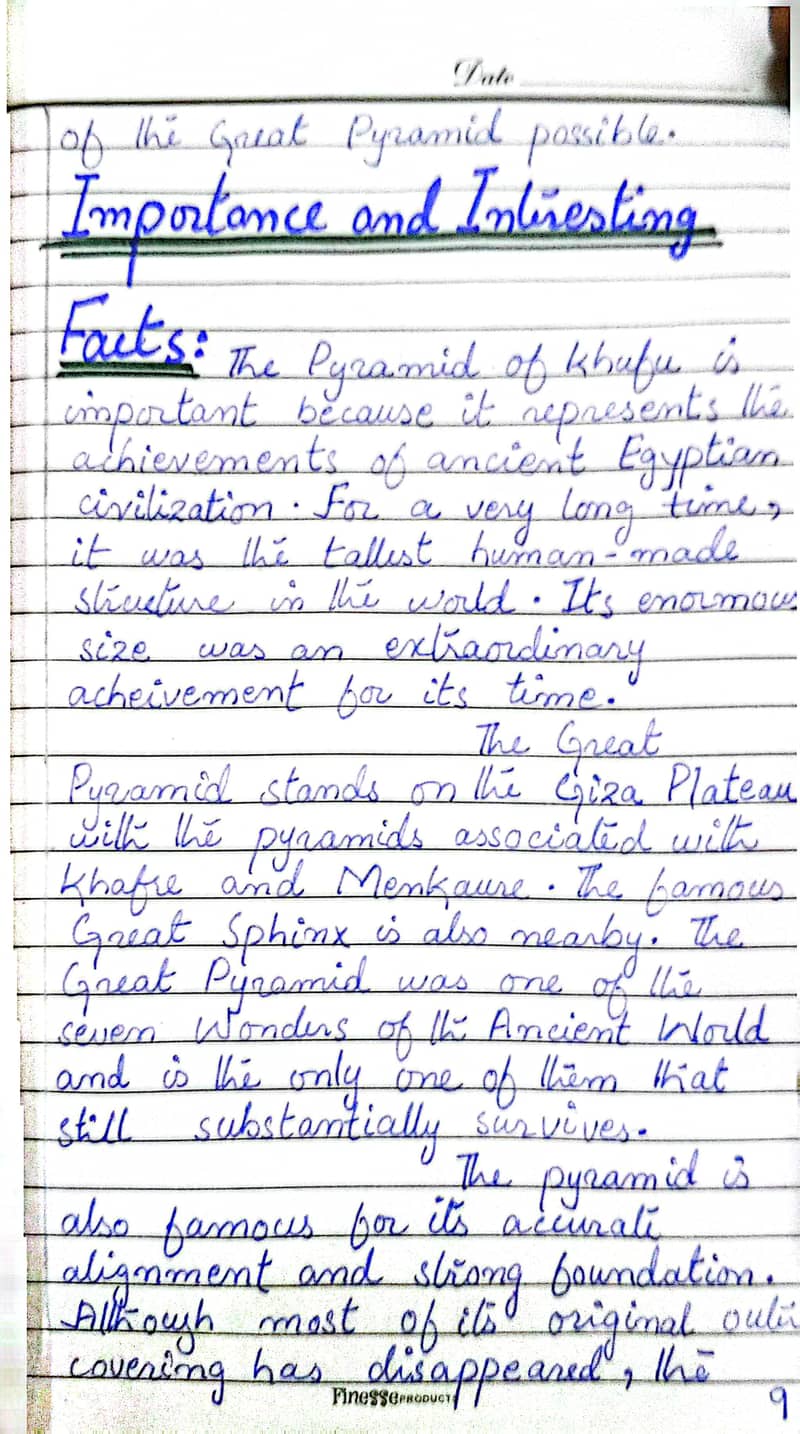 Date
of the Great Pyramid possible.
Importance and Intresting
Facts: The Pyramid of Khufu is
important because it represents the
achievements of ancient Egyptian
civilization. For a very long time,
it was the tallest human-made
structure in the world. Its enormous
size was an extraordinary
acheivement for its time.
The Great
Pyramid stands on the Giza Plateau
with the pyramids associated with
Khafre and Menkaure. The famous
Great Sphinx is also nearby. The
Great Pyramid was one of the
seven Wonders of the Ancient World
and is the only one of them that
still substantially survives.
The pyramid is
also famous for its accurate
alignment and strong foundation.
Although most of its original oute
covering has disappeared, the
Finesse PRODUCT
9